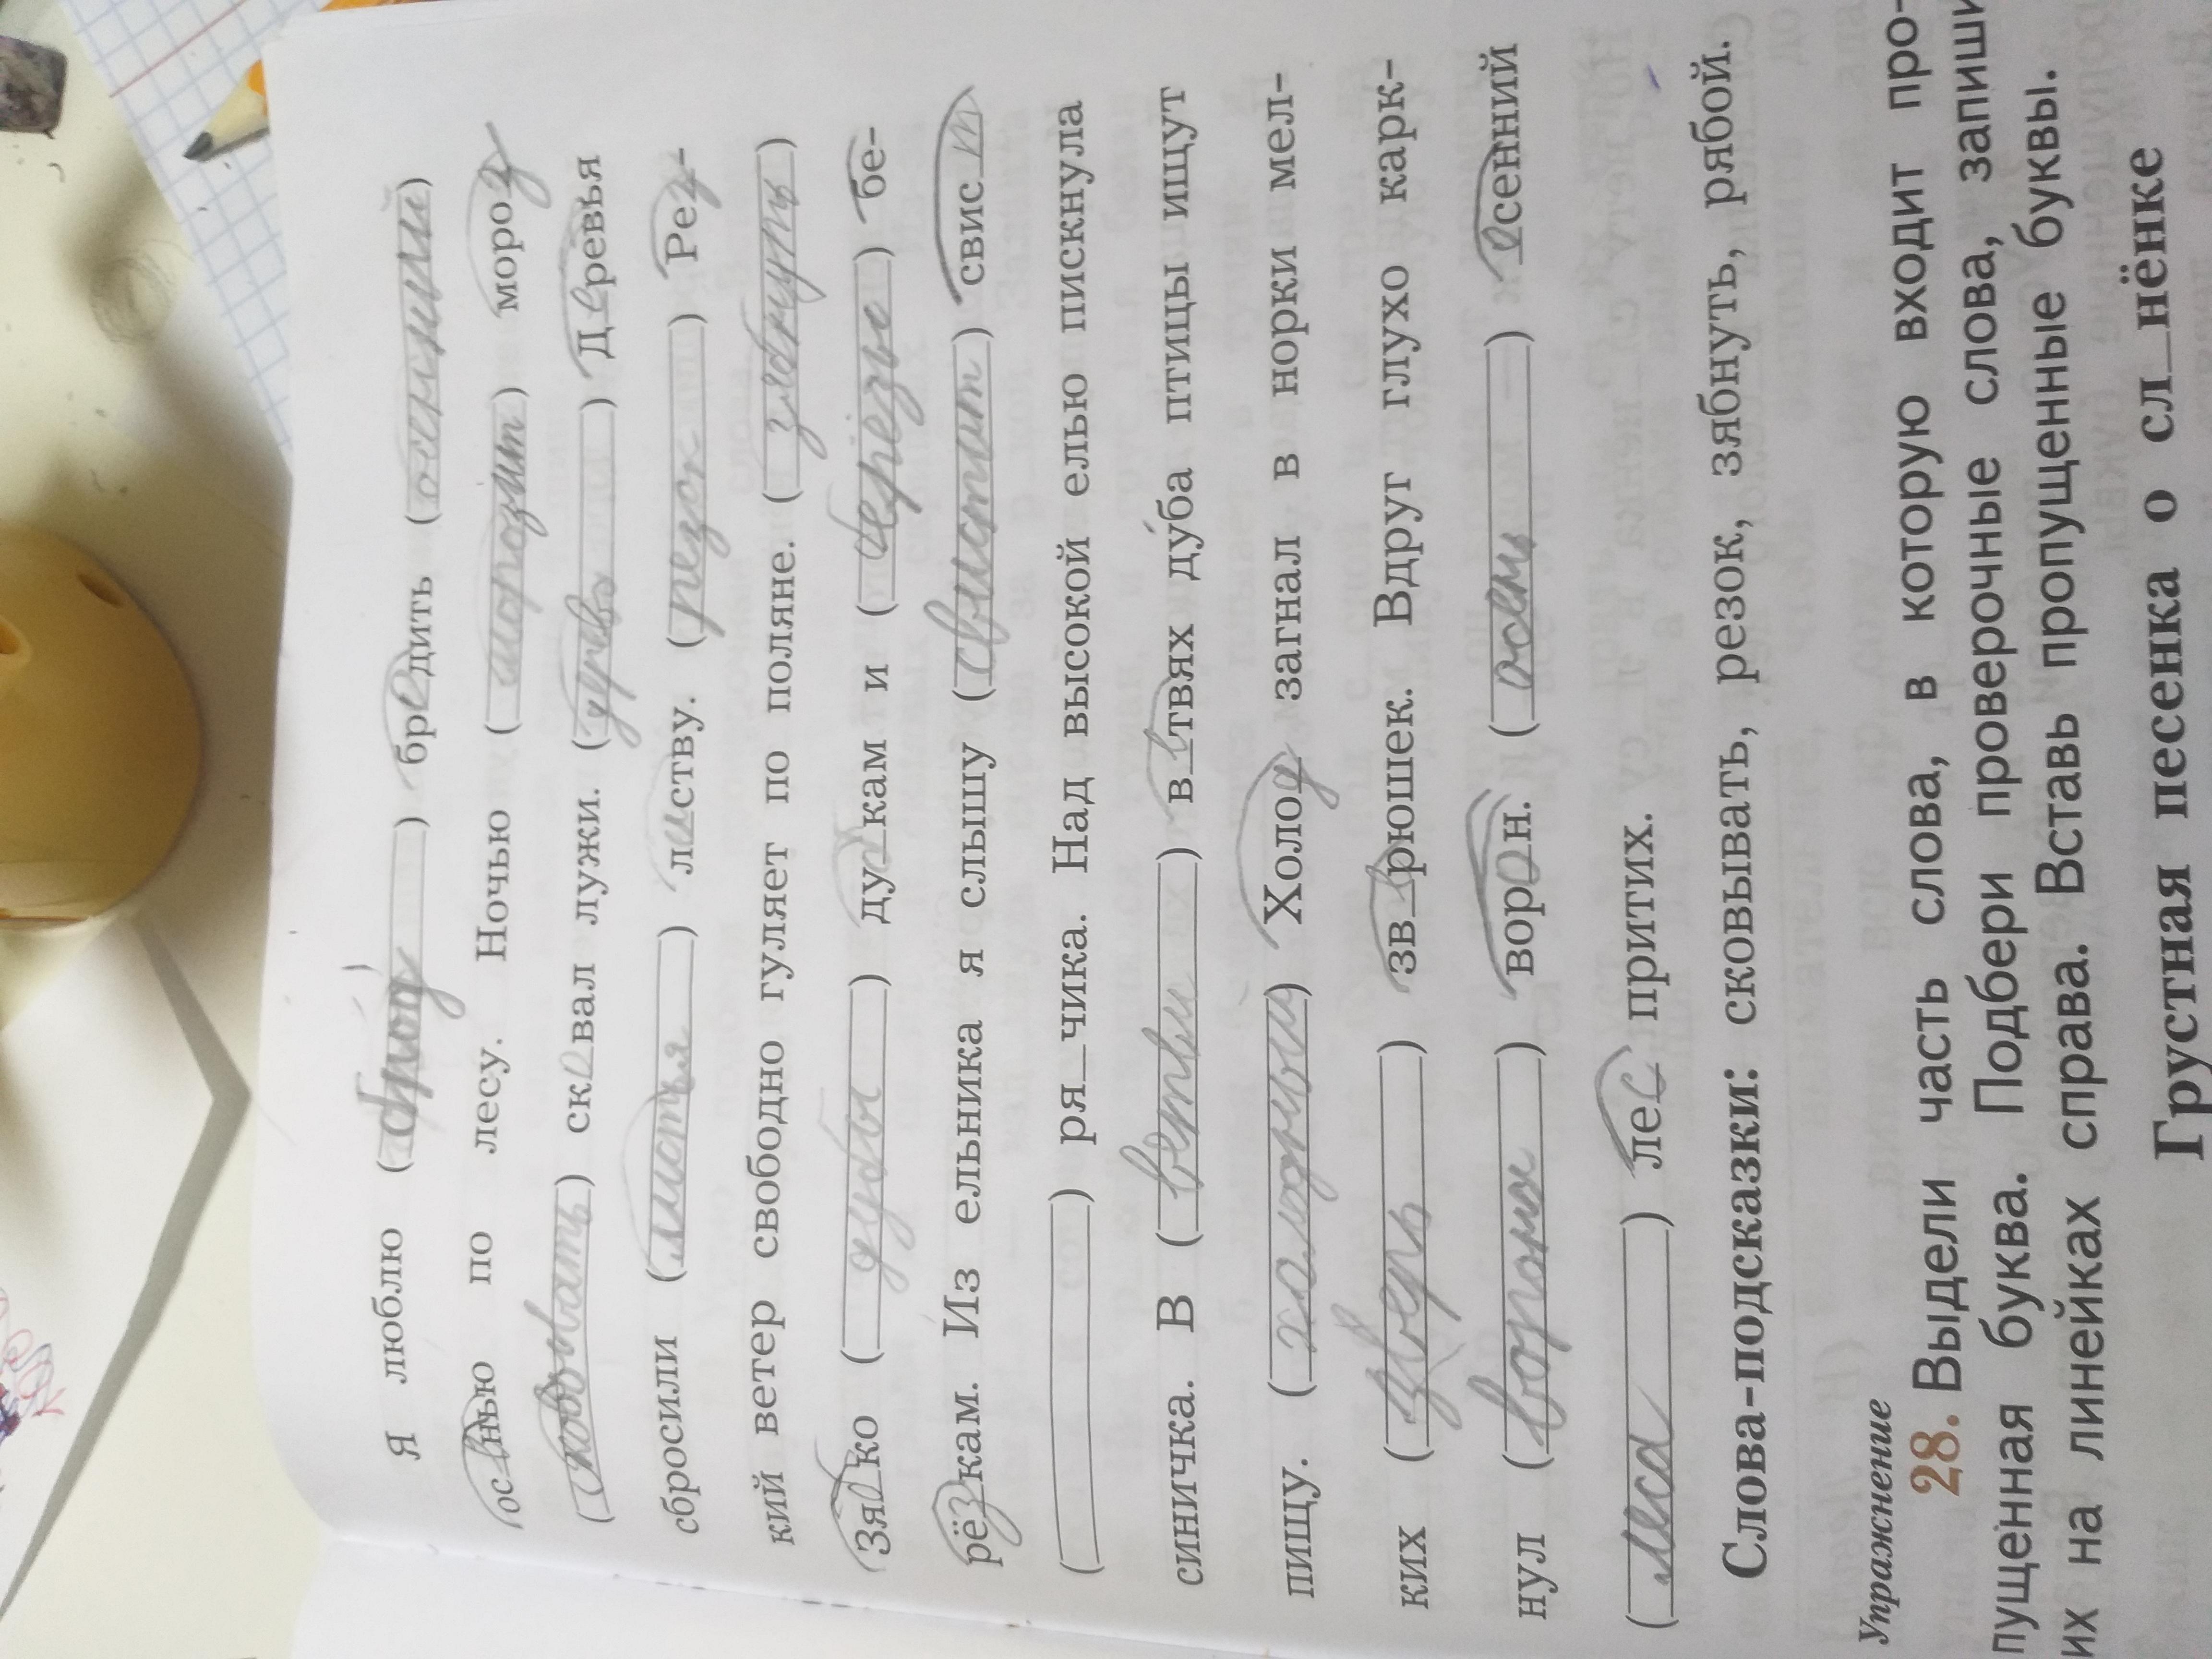 Я люблю (брод) бродить (осенний)
осенью по лесу. Ночью (морозит) мороз
(сковывать) сковал лужи. (дерево) Деревья
сбросили (листья) листву. (резок) Рез-
кий ветер свободно гуляет по поляне. (зябнуть)
Зябко (дубы) дубкам и (берёзы) бе-
рёзкам. Из ельника я слышу (свистит) свист
(____) ря_чика. Над высокой елью пискнула
синичка. В (ветви) ветвях дуба птицы ищут
пищу. (холодный) Холод загнал в норки мел-
ких (зверь) зверюшек. Вдруг глухо карк-
нул (вороны) ворон. (осень) Осенний
(леса) лес притих.
Слова-подсказки: сковывать, резок, зябнуть, рябой.
Упражнение
28. Выдели часть слова, в которую входит про-
пущенная буква. Подбери проверочные слова, запиши
их на линейках справа. Вставь пропущенные буквы.
Грустная песенка о сл_нёнке